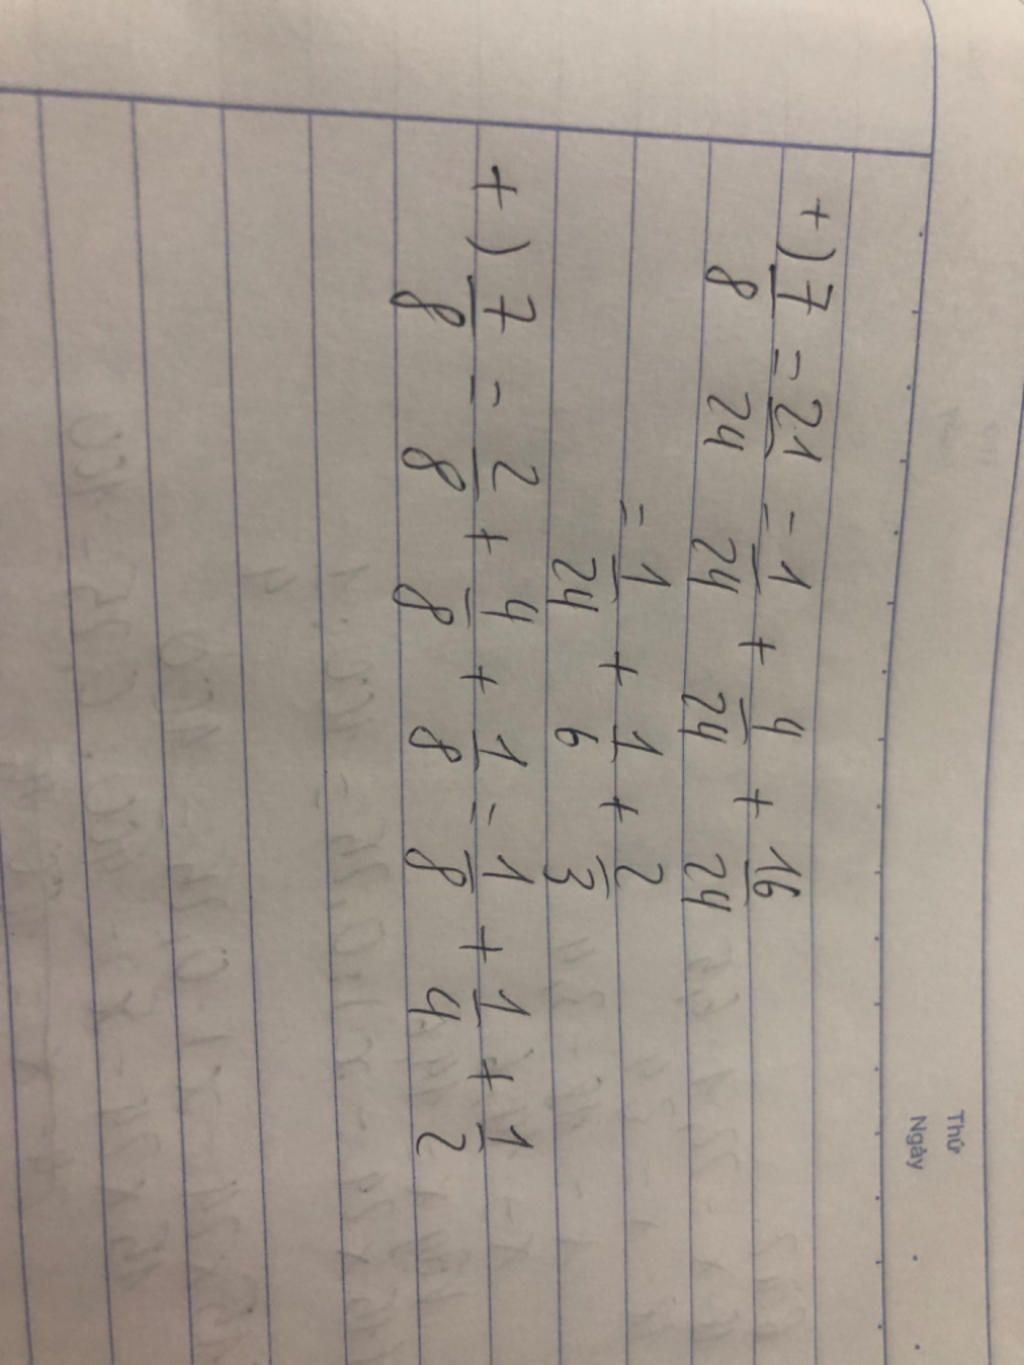 Thứ
Ngày
+) 7/8 = 21/24 = 1/24 + 4/24 + 16/24
= 1/24 + 1/6 + 2/3
+) 7/8 = 2/8 + 4/8 + 1/8 = 1/8 + 1/4 + 1/2